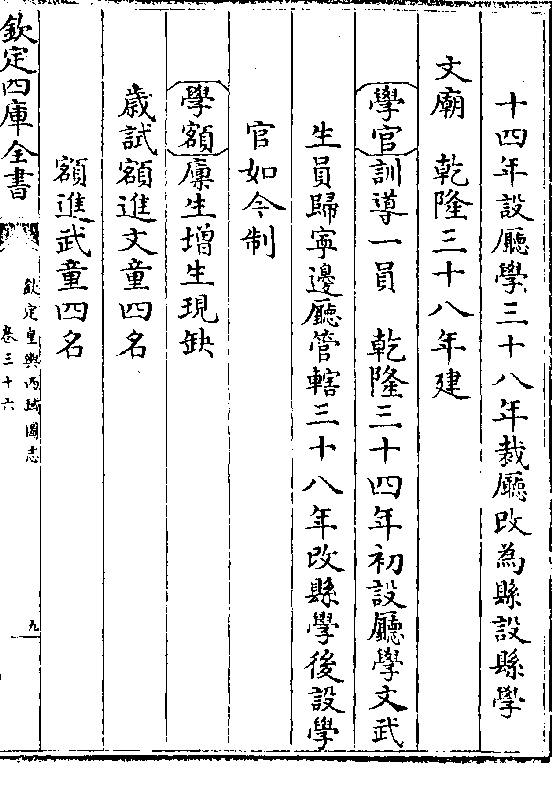 十四年設廳學三十八年裁廳改為縣設縣學
文廟　乾隆三十八年建
學官訓導一員　乾隆三十四年初設廳學文武
生員歸寧邊廳管轄三十八年改縣學後設學
官如今制
學額廩生增生現缺
歲試額進文童四名
額進武童四名
欽定四庫全書
欽定皇輿西域圖志
卷三十六
九